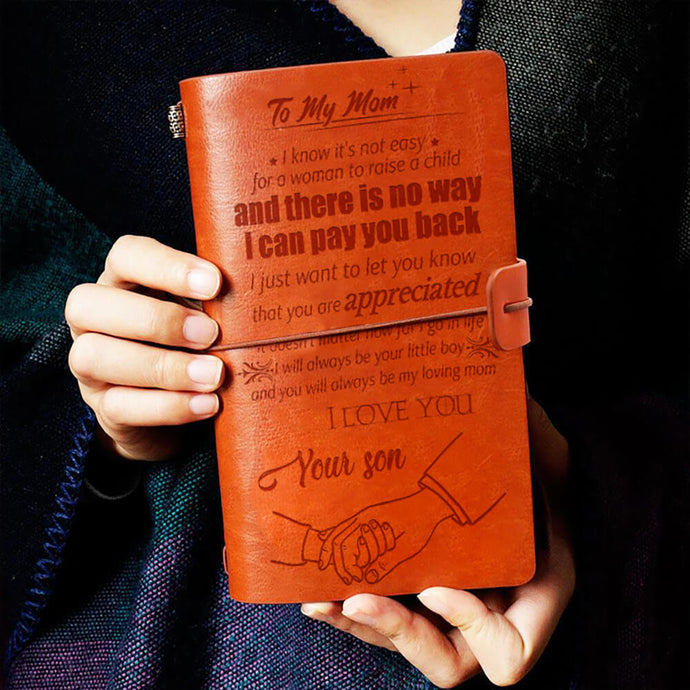 To My Mom
I know it's not easy
for a woman to raise a child
and there is no way
I can pay you back
I just want to let you know
that you are appreciated
It doesn't matter how far I go in life
I will always be your little boy
and you will always be my loving mom
I LOVE YOU
Your son